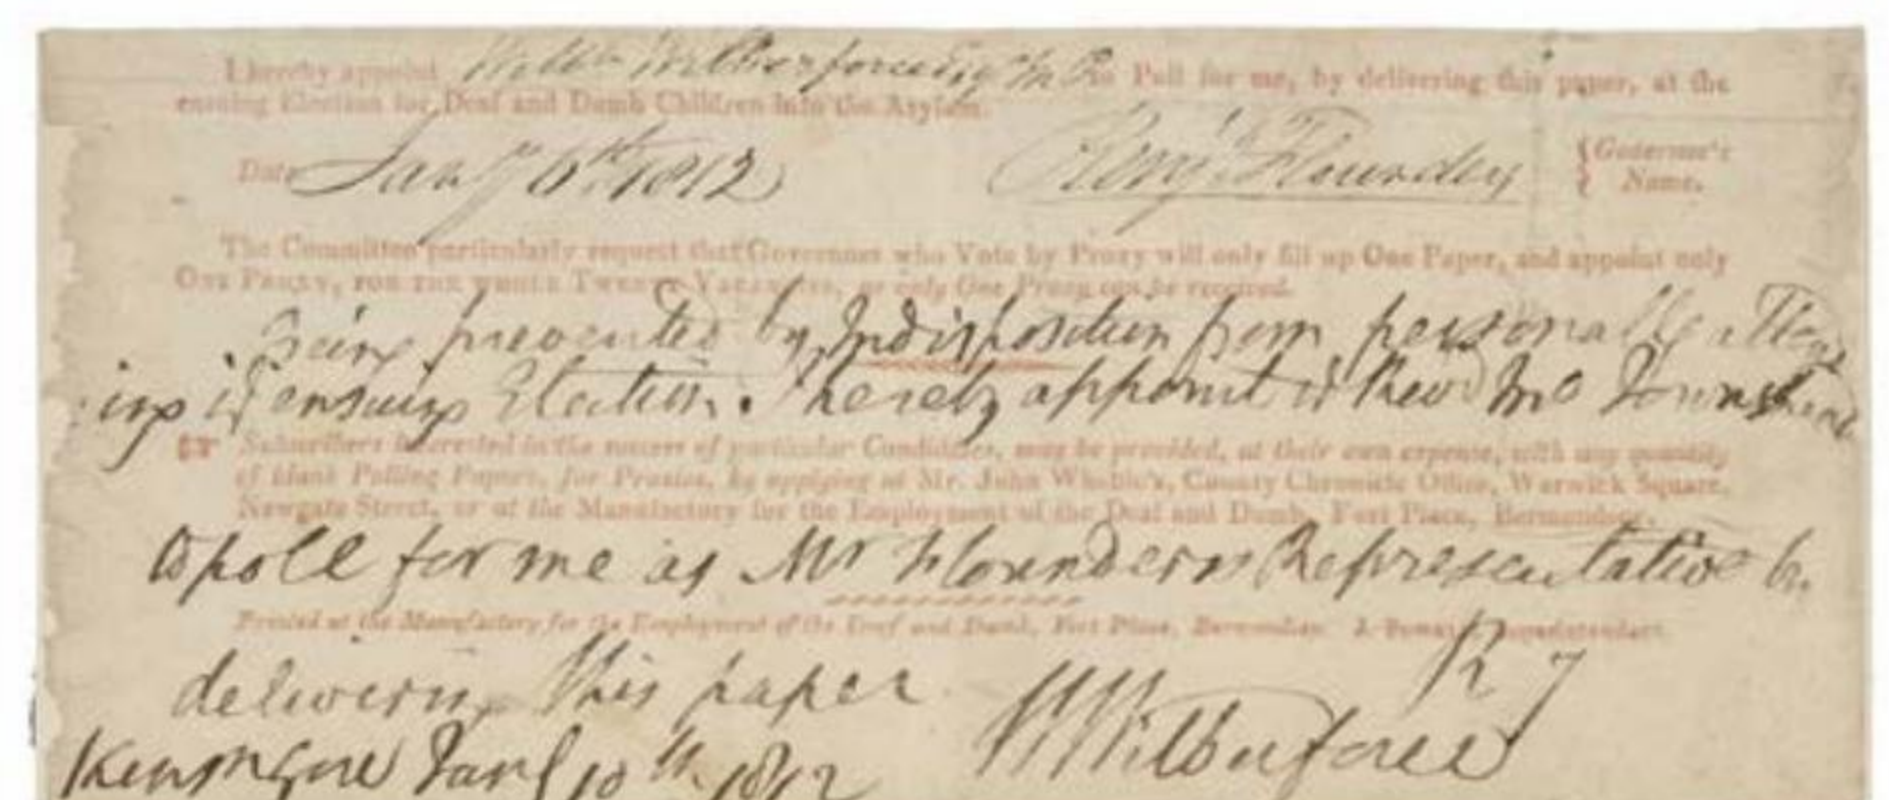 I hereby appoint Willm Wilberforce Esq M P to Poll for me, by delivering this paper, at the
ensuing Election for Deaf and Dumb Children into the Asylum.
Date Jany 6th 1812 Benjn Flounders { Governor's
Name.
The Committee particularly request that Governors who Vote by Proxy will only fill up One Paper, and appoint only
ONE PROXY, FOR THE WHOLE TWENTY VACANCIES, as only One Proxy can be received.
Being prevented by Indisposition from personally attend
ing ye ensuing Election. I hereby appoint ye Revd Mr Townshend
☞ Subscribers interested in the success of particular Candidates, may be provided, at their own expense, with any quantity
of blank Polling Papers, for Proxies, by applying at Mr. John Wheble's, County Chronicle Office, Warwick Square,
Newgate Street, or at the Manufactory for the Employment of the Deaf and Dumb, Fort Place, Bermondsey.
to poll for me as Mr Flounders's Representative by
Printed at the Manufactory for the Employment of the Deaf and Dumb, Fort Place, Bermondsey. Superintendant.
delivering this paper
W Wilberforce
Kensn Gore Jany 10th 1812